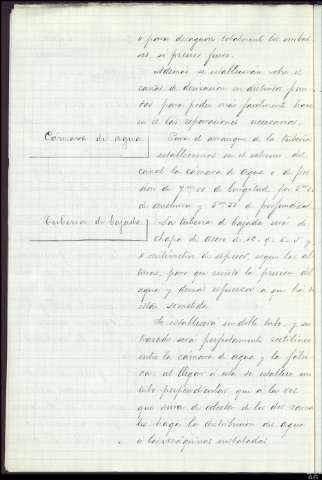 ó para desaguar totalmente los embal-
ses, si preciso fuera.
Además se establecerán sobre el
canal de derivación en distintos pun-
tos para poder más facilmente hacer
en él las reparaciones necesarias.
Cámara de agua
Para el arranque de la tubería
estableceremos en el extremo del
canal la cámara de agua ó de pre-
sión de 7 de longitud por
de anchura y de profundidad.
Tubería de bajada
La tubería de bajada será de
chapa de acero de 10. 9. 6. 5 y
milímetros de espesor, segun las al-
turas, para que resista la presión del
agua y demás esfuerzos a que há de
estar sometida.
Se establecerá un doble tubo, y su
trazado será perfectamente rectilíneo
entre la cámara de agua y la fábri-
ca; al llegar á esta se establece un
tubo perpendicular que á la vez
que sirva de colector de los dos rama-
les haga la distribución de agua
á las máquinas instaladas.